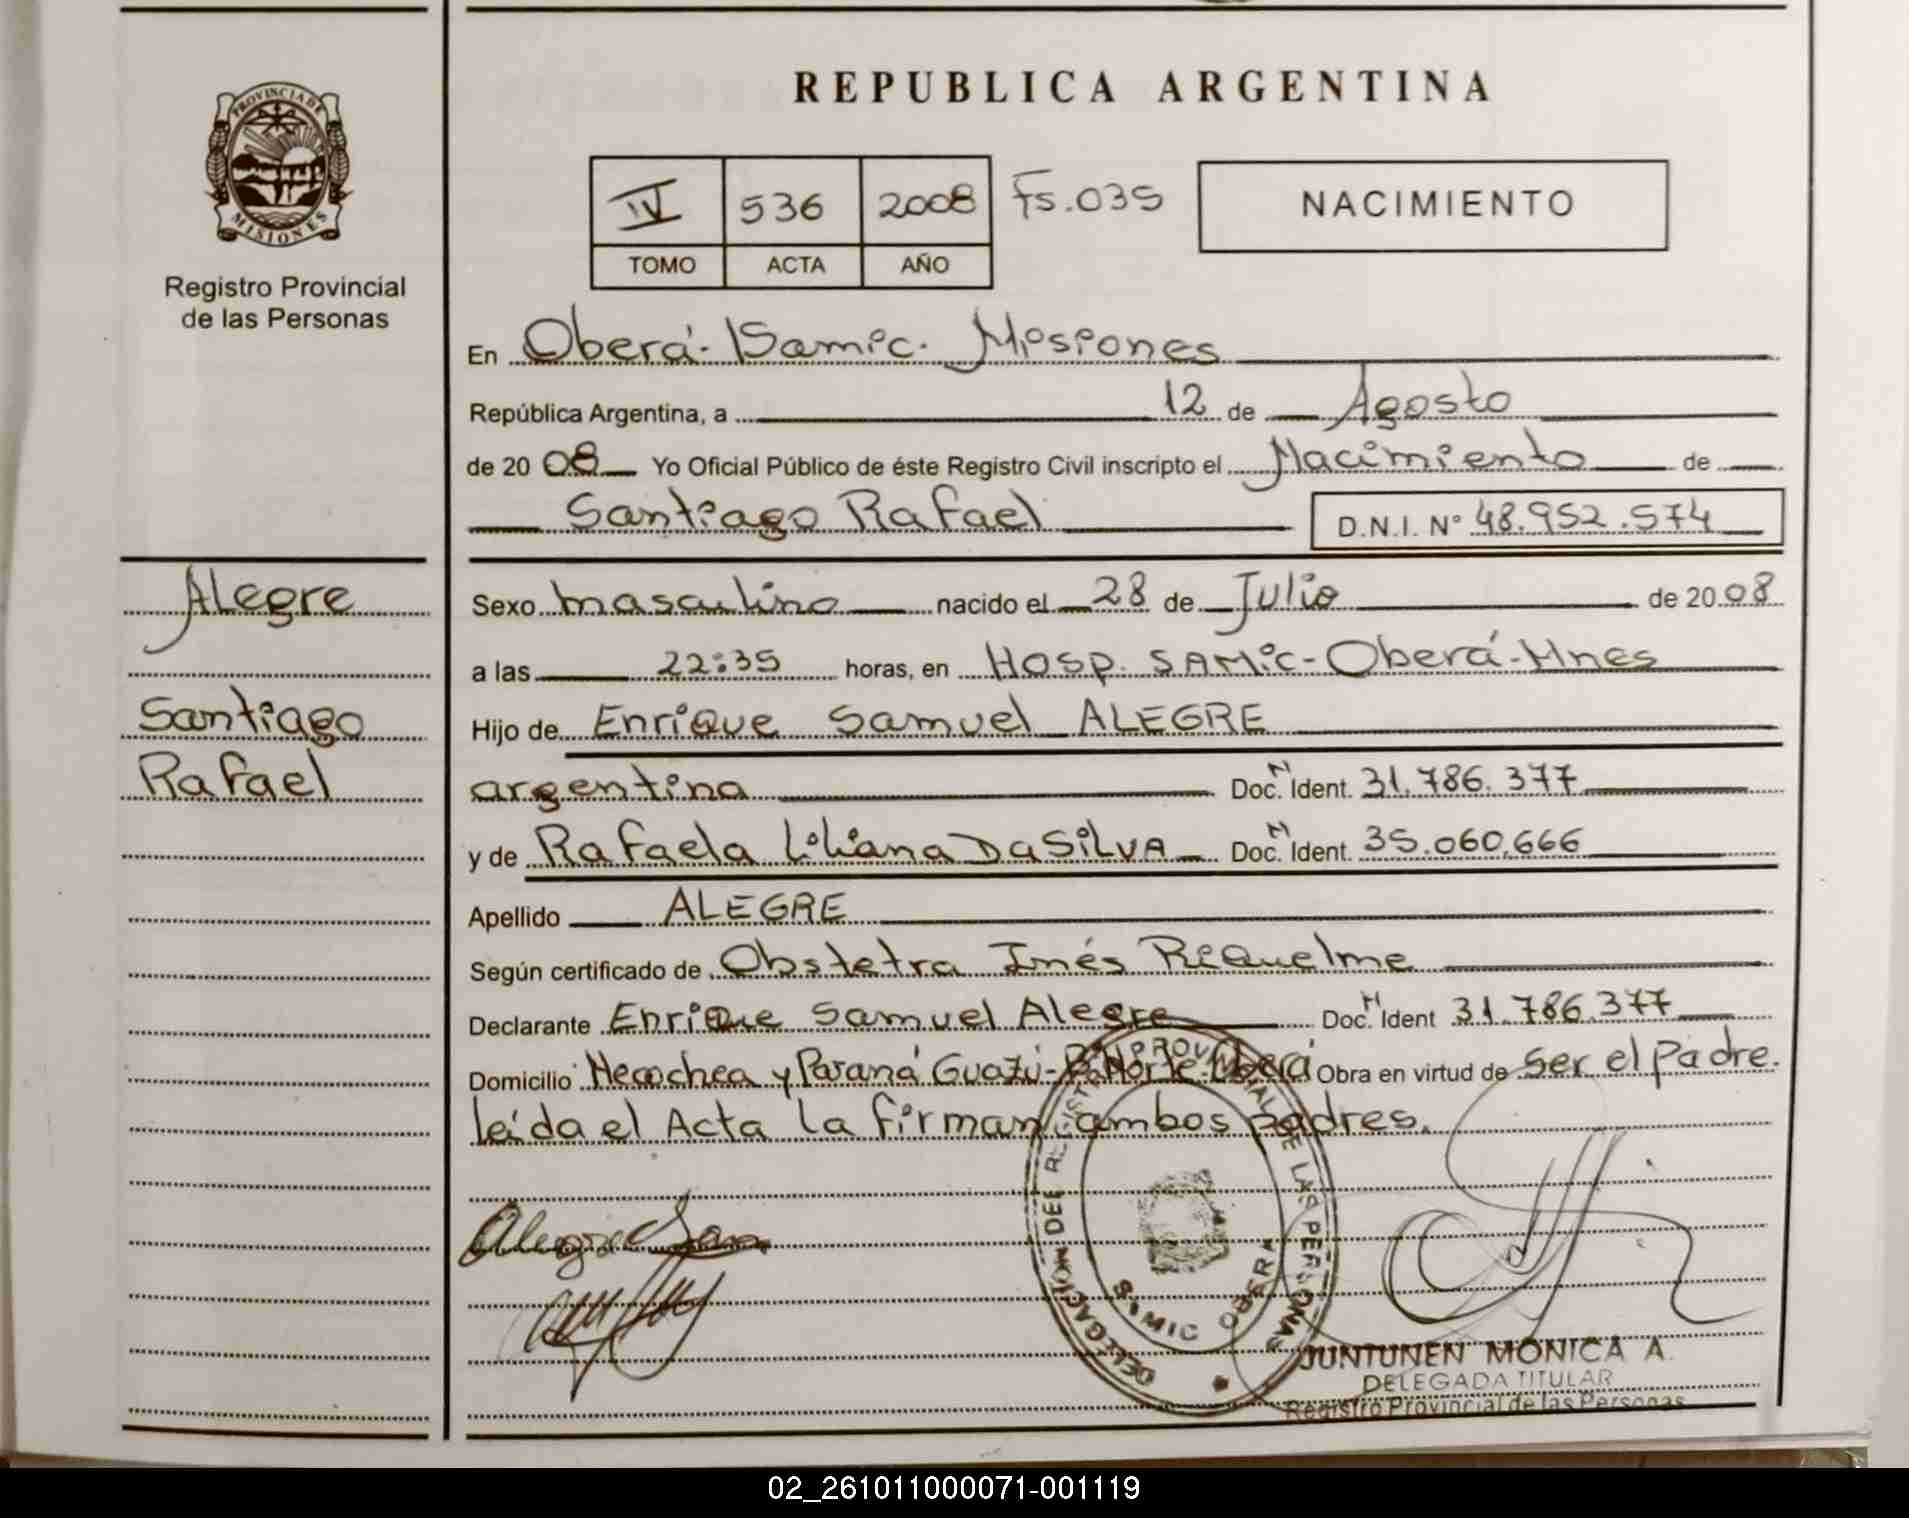 REPUBLICA ARGENTINA
PROVINCIA DE
MISIONES
Registro Provincial
de las Personas
IV 536 2008 Fs.035
TOMO ACTA AÑO
NACIMIENTO
En Oberá-Samic. Misiones
República Argentina, a 12 de Agosto
de 2008 Yo Oficial Público de éste Registro Civil inscripto el Nacimiento de
Santiago Rafael D.N.I. N° 48.952.574
Alegre
Santiago
Rafael
Sexo masculino nacido el 28 de Julio de 2008
a las 22:35 horas, en Hosp. SAMic-Oberá-Mnes
Hijo de Enrique Samuel ALEGRE
argentina Doc. N Ident. 31.786.377
y de Rafaela Liliana DaSILVA Doc. N Ident. 35.060.666
Apellido ALEGRE
Según certificado de Obstetra Inés Riquelme
Declarante Enrique Samuel Alegre Doc. N Ident 31.786.377
Domicilio Necochea y Paraná Guazú-Bº Norte-Oberá Obra en virtud de Ser el Padre.
leída el Acta la firman ambos padres.
DELEGACIÓN DEL REGISTRO PROVINCIAL DE LAS PERSONAS
SAMIC OBERA
JUNTUNEN MONICA A.
DELEGADA TITULAR
Registro Provincial de las Personas
02_261011000071-001119